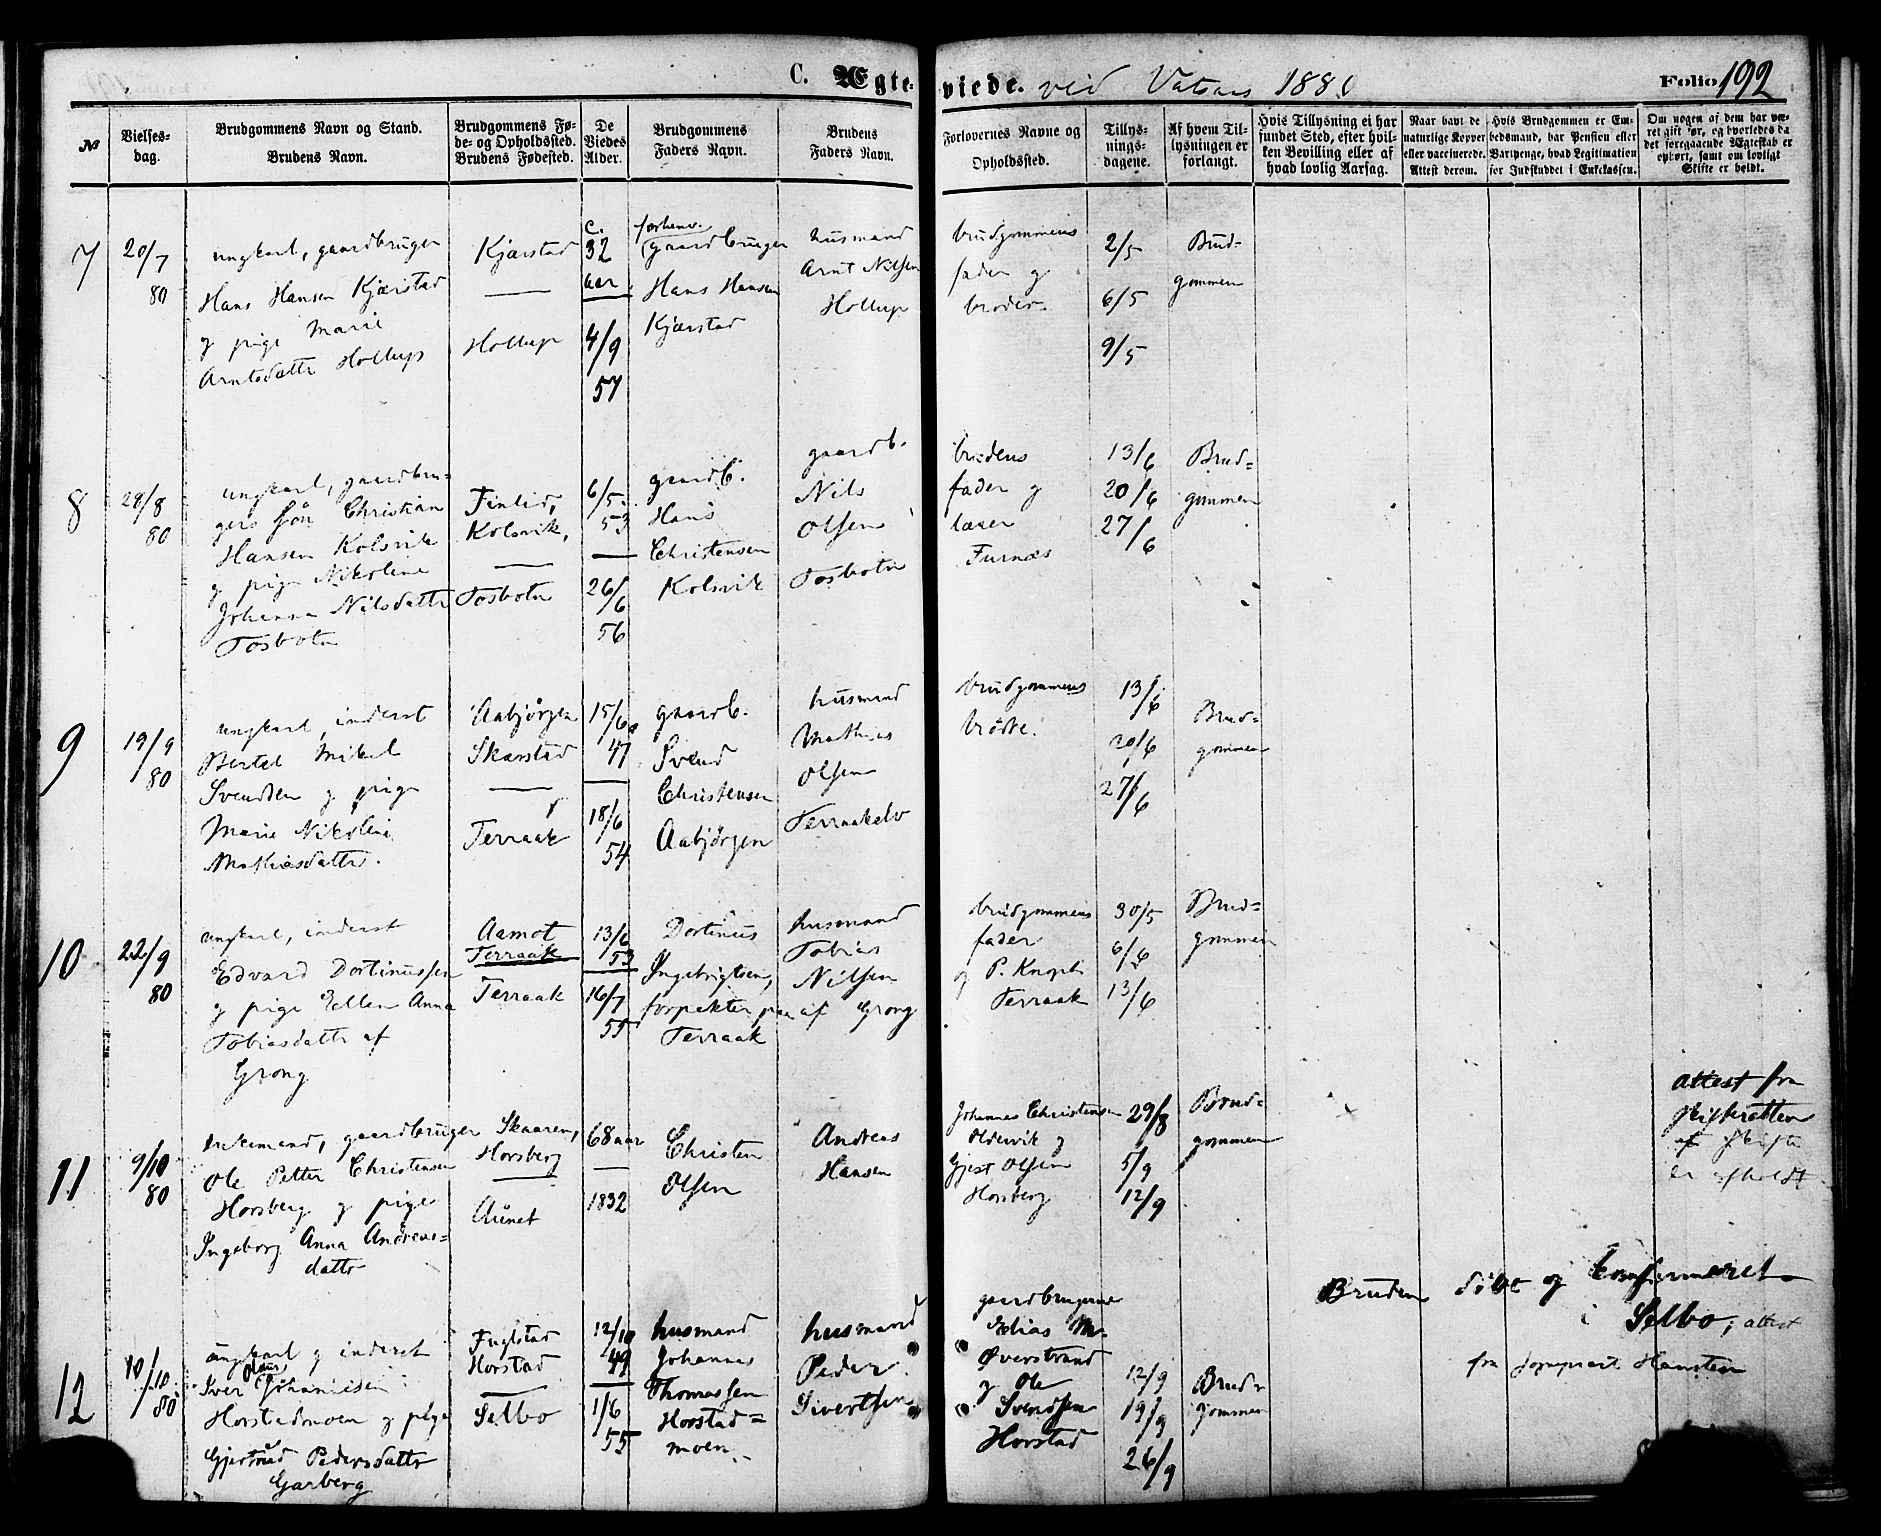 C. Ægteviede. ved Vatsaas 1880
Folio 192
№
Vielses-
dag.
Brudgommens Navn og Stand.
Brudens Navn.
Brudgommens Fø-
de- og Opholdssted.
Brudens Fødested.
De
Viedes
Alder.
Brudgommens
Faders Navn.
Brudens
Faders Navn.
Forlovernes Navne og
Opholdssted.
Tillys-
nings-
dagene.
Af hvem Til-
lysningen er
forlangt.
Hvis Tillysning ei har
fundet Sted, efter hvil-
ken Bevilling eller af
hvad lovlig Aarsag.
Naar havt de
naturlige Kopper
eller vaccinerede.
Attest derom.
Hvis Brudgommen er Em-
bedsmand, har Pension eller
Vartpenge, hvad Legitimation
for Indskuddet i Enkekassen.
Om nogen af dem har væ-
ret gift før, og hvorledes da
det foregaaende Ægteskab er
ophørt, samt om lovligt
Skifte er holdt.
7
20/7
80
ungkarl, gaardbruger
Hans Hansen Kjærstad
og pige Marie
Arntsdattr Hollup
Kjærstad
—
Hollup
c.
32
aar
4/9
57
forhenv.
gaardbruger
Hans Hansen
Kjærstad
husmand
Arnt Nilsen
Hollup
brudgommens
fader og
broder
2/5
6/5
9/5
Brud=
gommen
8
29/8
80
ungkarl, gaardbru=
gers søn Christian
Hansen Kolsvik
og pige Nikoline
Johanna Nilsdattr
Tosbotn
Finlid,
Kolsvik,
—
Tosbotn
6/5
53
—
26/6
56
gaardb.
Hans
Christensen
Kolsvik
gaardb.
Nils
Olsen
Tosbotn
brudens
fader og
lærer
Furnæs
13/6
20/6
27/6
Brud=
gommen
9
19/9
80
ungkarl, inderst
Bertel Mikal
Svendsen og pige
Marie Nikoline
Mathiasdattr.
Aabjørgen
Skarstad
—
Terraak
15/6
47
—
18/6
54
gaardb.
Svend
Christensen
Aabjørgen
husmand
Mathias
Olsen
Terraakelv
brudgommens
brødre.
13/6
20/6
27/6
Brud=
gommen
10
22/9
80
ungkarl, inderst
Edvard Dortinussen
og pige Ellen Anna
Tobiasdattr af
Grong
Aamot
Terraak
Terraak
13/6
53
16/7
55
Dortinus
Ingebrigtsen,
forpakter paa
Terraak
husmand
Tobias
Nilsen
af Grong
brudgommens
fader
og P. Knoph
Terraak
30/5
6/6
13/6
Brud=
gommen
11
9/10
80
Enkemand, gaardbruger
Ole Petter Christensen
Horsberg og pige
Ingeborg Anna Andreas=
dattr
Skaaren,
Horsberg
—
Aunet
68 aar
—
1832
Christen
Olsen
Andreas
Hansen
Johannes Christensen
Oldervik og
Gjest Olsen
Horsberg
29/8
5/9
12/9
Brud=
gommen
attest fra
skifteretten
at skifte
er afholdt.
12
10/10
80
ungkarl og inderst
Iver Olaus Johannesen
Horstadmoen og pige
Gjertrud Pedersdattr
Garberg
Fuglstad
Horstad
—
Selbo
12/10
49
1/6
55
husmand
Johannes
Thomassen
Horstad=
moen.
husmand
Peder
Sivertsen
gaardbrugerne
Elias M.
Øverstrand
og Ole
Svendsen
Horstad
12/9
19/9
26/9
Brud=
gommen
Bruden døbt og konfirmeret
i Selbo; attest
fra sognepræst Hansteen